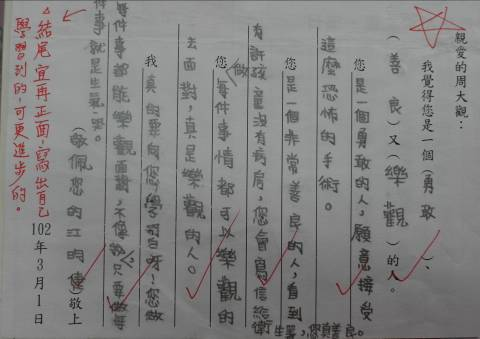 親愛的周大觀：
我覺得您是一個(勇敢)、
(善良)又(樂觀)的人。
您是一個勇敢的人，願意接受
這麼恐怖的手術。
您是一個非常善良的人，看到
有許孩童沒有病房，您會寫信給衛
生署，您真善良。
您做每件事情都可以樂觀的
去面對，真是樂觀的人。
我真的要向您學習呀！您做
每件事都能樂觀面對，不像我只要做每
件事就是生氣、哭。
(敬佩您的江明)敬上
102年3月1日
△結尾宜再正面，寫出自己
學習到的，可更進步的。